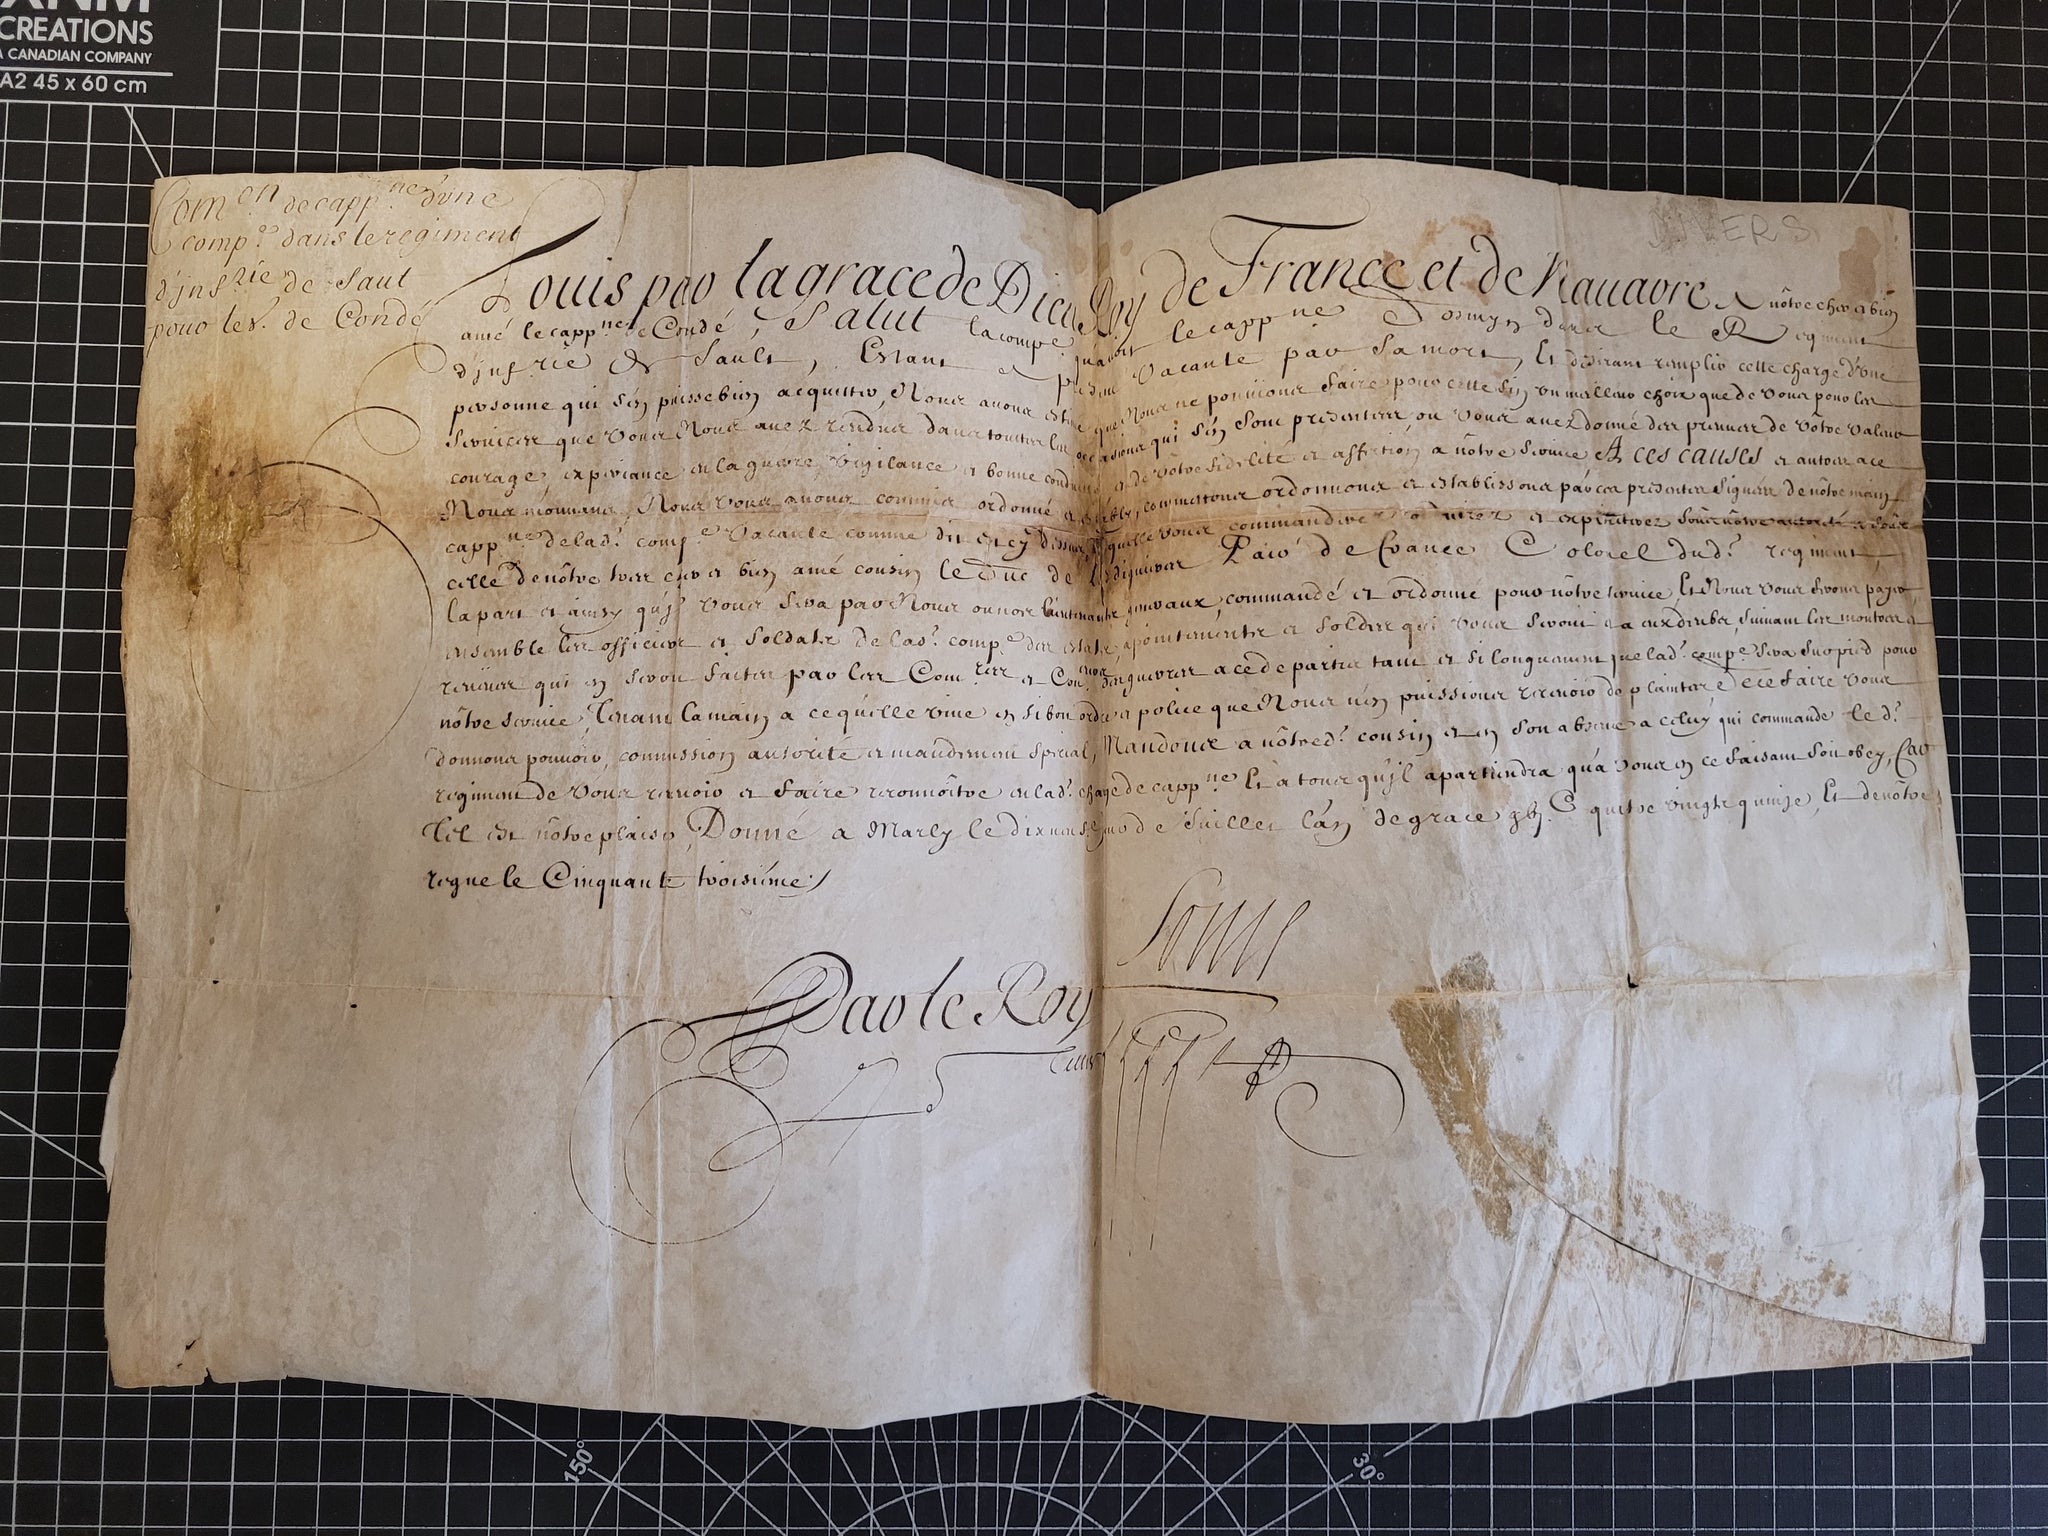 XNM
CREATIONS
A CANADIAN COMPANY
A2 45 x 60 cm
DIVERS
Com.on de capp.ne d'vne
comp.e dans le regiment
d'jnf.rie de Saut
pour le s.r de Condé
Louis par la grace de Dieu Roy de France et de Nauarre A nôtre cher et bien
amé le capp.ne de Condé, Salut la comp.e qu'auoit le capp.ne dans le Regiment
d'jnf.rie de Sault, Estant a pñt vacante par sa mort, Et desirant remplir cette charge d'vne
personne qui s'en puisse bien acquitter, Nous auons estimé que Nous ne pouuions faire pour cette fin vn meilleur choix que de vous pour les
seruices que vous Nous auez rendus dans toutes les occasions qui s'en sont presentées ou vous auez donné des preuues de vôtre valeur
courage, experiance en la guerre, vigilance et bonne conduite, et de vôtre fidelité et affection a nôtre seruice A CES CAUSES et autres a ce
Nous mouuans, Nous vous auons commis ordonné et estably, commettons ordonnons et establissons par ces presentes signées de nôtre main
capp.ne de lad.e comp.e vacante comme dit est cy dessus, laquelle vous commanderez et exploiterez sous nôtre autorité et sous
celle de nôtre tres cher et bien amé cousin le Duc de Lesdiguieres Pair de France Colonel dud.t regiment,
la part et ainsy qu'jl vous sera par Nous ou nos lieutenants generaux, commandé et ordonné pour nôtre seruice, Et Nous vous ferons payer
ensemble les officiers et soldats de lad.e comp.e des estats apointements et soldes qui vous seront et a eux deubs, suiuant les montres et
reueues qui en seront faites par les Com.res et Con.rs des guerres a ce departis tant et si longuement que lad.e comp.e sera sur pied pour
nôtre seruice, Tenant la main a ce qu'elle viue en si bon ordre et police que Nous n'en puissions receuoir de plaintes De ce faire vous
donnons pouuoir, commission autorité et mandement special, Mandons a nôtred.t cousin et en son absence a celuy qui commande led.t
regiment de vous receuoir et faire reconnôitre en lad.e charge de capp.ne Et a tous qu'jl apartiendra qu'a vous en ce faisant soit obey, Car
tel est nôtre plaisir, Donné a Marly le de Juillet l'an de grace gbj.C quatre vingts quinze, Et de nôtre
regne le Cinquante troisiéme./
Louis
Par le Roy
150°
30°